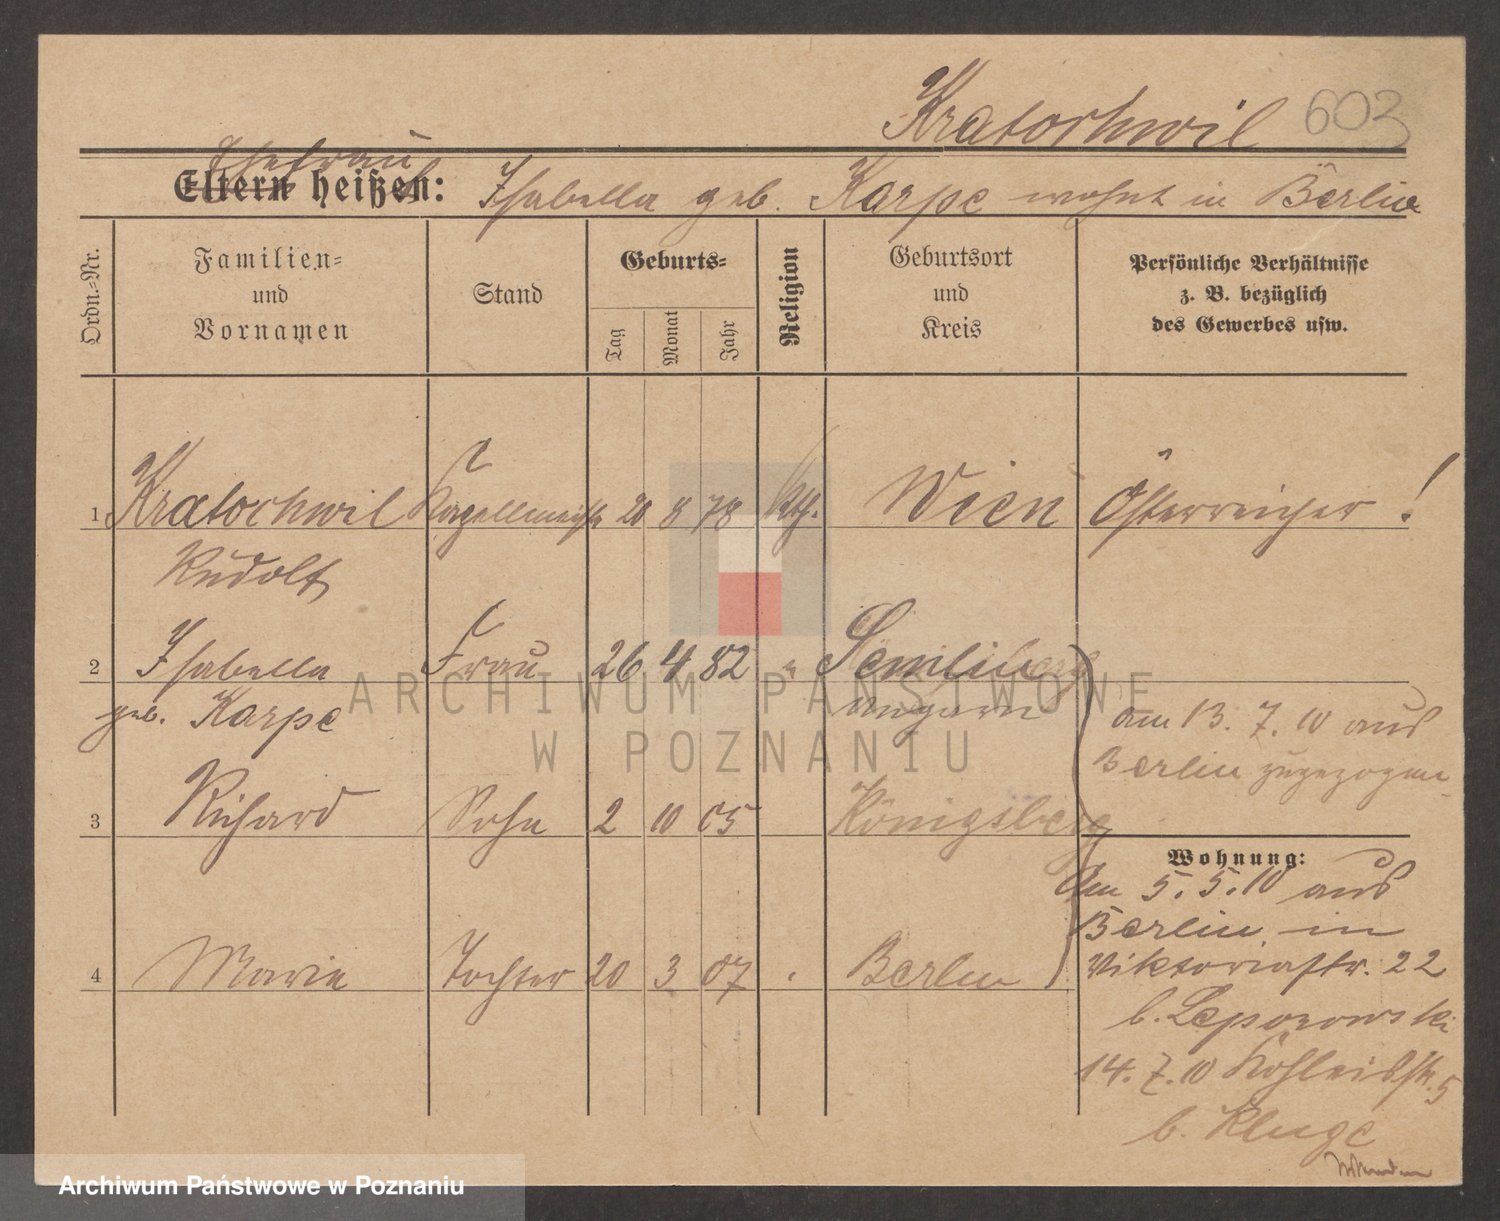 Kratochwil 603
Ehefrau
Eltern heißen: Isabella geb. Karpe wohnt in Berlin
Ordn.=Nr.
Familien=
und
Vornamen
Stand
Geburts=
Tag
Monat
Jahr
Religion
Geburtsort
und
Kreis
Persönliche Verhältnisse
z. B. bezüglich
des Gewerbes usw.
1 Kratochwil Kapellmeister 20 8 78 kth. Wien Österreicher !
Rudolf
2 Isabella Frau 26 4 82 " Semlin
geb. Karpe Ungarn am 13. 7. 10 aus
Berlin zugezogen
3 Richard Sohn 2 10 05 Königsberg
Wohnung:
Am 5. 5. 10 aus
Berlin, in
Viktoriastr. 22
4 Marie Tochter 20 3 07 " Berlin
b. Leporowski
14. 7. 10 Kohleisstr. 5
b. Kluge
ARCHIWUM PAŃSTWOWE
W POZNANIU
Archiwum Państwowe w Poznaniu